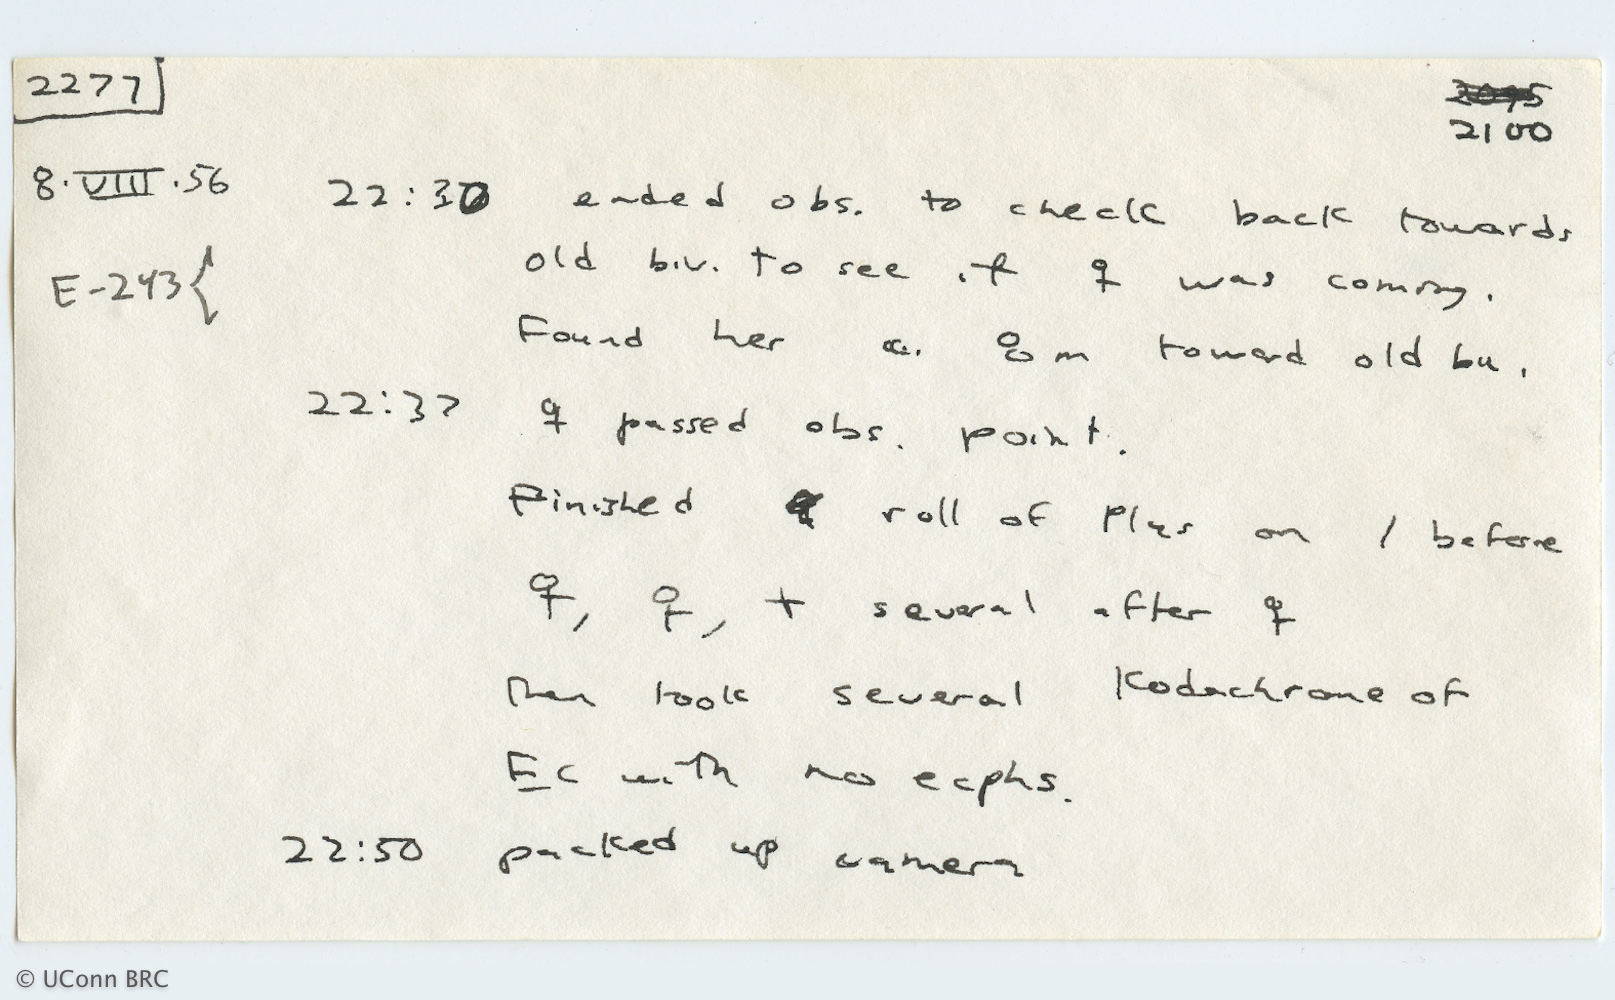 2277
2100
8.VIII.56 22:30 ended obs. to check back towards
old biv. to see if ♀ was coming.
E-243{
Found her ca. 8 m toward old biv.
22:37 ♀ passed obs. point.
Finished roll of Plus on / before
♀, ♀, + several after ♀
Then took several Kodachrome of
Ec with no ecphs.
22:50 packed up camera
© UConn BRC